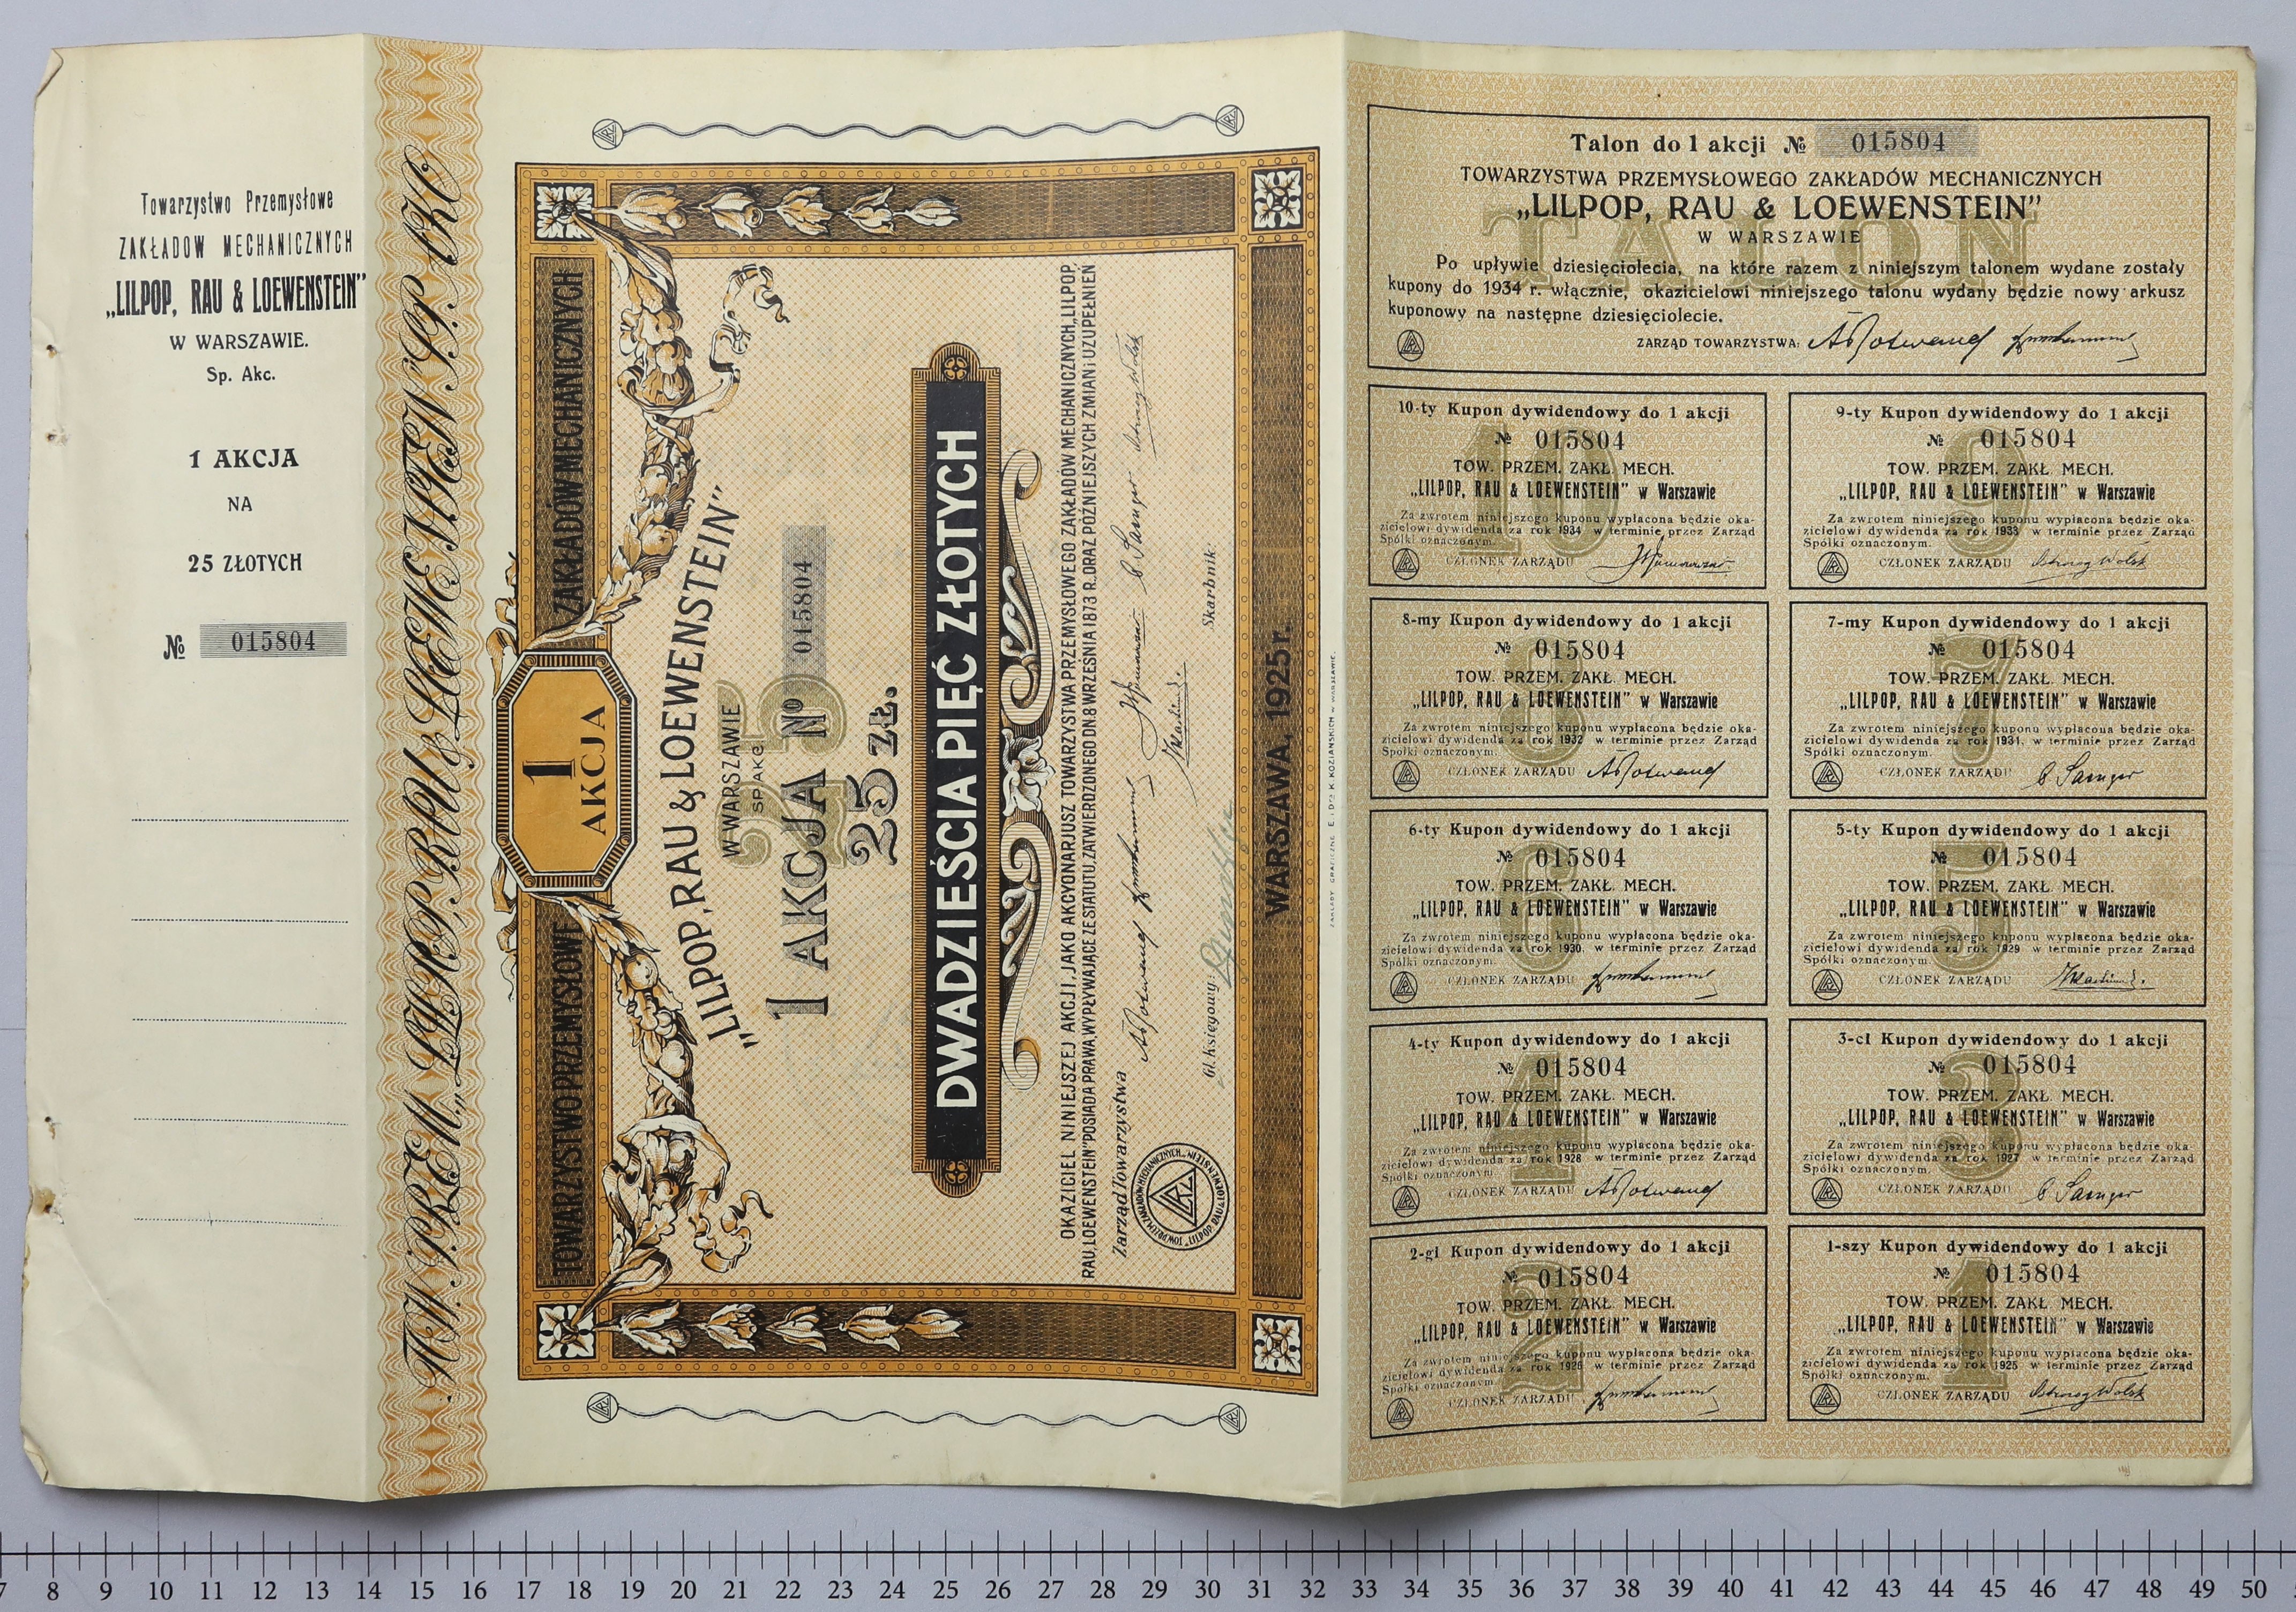 Towarzystwo Przemysłowe
ZAKŁADOW MECHANICZNYCH
„LILPOP, RAU & LOEWENSTEIN”
W WARSZAWIE.
Sp. Akc.
1 AKCJA
NA
25 ZŁOTYCH
№ 015804
TOW. PRZEM. „LILPOP, RAU & LOEWENSTEIN” SP. AKC.
TOWARZYSTWO PRZEMYSŁOWE ZAKŁADÓW MECHANICZNYCH
1
AKCJA
„LILPOP, RAU & LOEWENSTEIN”
W WARSZAWIE
SP. AKC.
25
1 AKCJA № 015804
25 ZŁ.
DWADZIEŚCIA PIĘĆ ZŁOTYCH
OKAZICIEL NINIEJSZEJ AKCJI, JAKO AKCYONARJUSZ TOWARZYSTWA PRZEMYSŁOWEGO ZAKŁADÓW MECHANICZNYCH „LILPOP,
RAU, LOEWENSTEIN” POSIADA PRAWA, WYPŁYWAJĄCE ZE STATUTU, ZATWIERDZONEGO DN. 8 WRZEŚNIA 1873 R. ORAZ PÓŹNIEJSZYCH ZMIAN i UZUPEŁNIEN
Zarząd Towarzystwa
Gł. księgowy:
Skarbnik:
WARSZAWA, 1925 r.
ZAKŁADY GRAFICZNE E. i Dra K. KOZIAŃSKICH w WARSZAWIE.
TALON
Talon do 1 akcji № 015804
TOWARZYSTWA PRZEMYSŁOWEGO ZAKŁADÓW MECHANICZNYCH
„LILPOP, RAU & LOEWENSTEIN”
W WARSZAWIE
Po upływie dziesięciolecia, na które razem z niniejszym talonem wydane zostały
kupony do 1934 r. włącznie, okazicielowi niniejszego talonu wydany będzie nowy arkusz
kuponowy na następne dziesięciolecie.
ZARZĄD TOWARZYSTWA:
10-ty Kupon dywidendowy do 1 akcji
№ 015804
TOW. PRZEM. ZAKŁ. MECH.
„LILPOP, RAU & LOEWENSTEIN” w Warszawie
Za zwrotem niniejszego kuponu wypłacona będzie oka-
zicielowi dywidenda za rok 1934 w terminie przez Zarząd
Spółki oznaczonym.
CZŁONEK ZARZĄDU
9-ty Kupon dywidendowy do 1 akcji
№ 015804
TOW. PRZEM. ZAKŁ. MECH.
„LILPOP, RAU & LOEWENSTEIN” w Warszawie
Za zwrotem niniejszego kuponu wypłacona będzie oka-
zicielowi dywidenda za rok 1933 w terminie przez Zarząd
Spółki oznaczonym.
CZŁONEK ZARZĄDU
8-my Kupon dywidendowy do 1 akcji
№ 015804
TOW. PRZEM. ZAKŁ. MECH.
„LILPOP, RAU & LOEWENSTEIN” w Warszawie
Za zwrotem niniejszego kuponu wypłacona będzie oka-
zicielowi dywidenda za rok 1932 w terminie przez Zarząd
Spółki oznaczonym.
CZŁONEK ZARZĄDU
7-my Kupon dywidendowy do 1 akcji
№ 015804
TOW. PRZEM. ZAKŁ. MECH.
„LILPOP, RAU & LOEWENSTEIN” w Warszawie
Za zwrotem niniejszego kuponu wypłacona będzie oka-
zicielowi dywidenda za rok 1931. w terminie przez Zarząd
Spółki oznaczonym.
CZŁONEK ZARZĄDU
6-ty Kupon dywidendowy do 1 akcji
№ 015804
TOW. PRZEM. ZAKŁ. MECH.
„LILPOP, RAU & LOEWENSTEIN” w Warszawie
Za zwrotem niniejszego kuponu wypłacona będzie oka-
zicielowi dywidenda za rok 1930. w terminie przez Zarząd
Spółki oznaczonym.
CZŁONEK ZARZĄDU
5-ty Kupon dywidendowy do 1 akcji
№ 015804
TOW. PRZEM. ZAKŁ. MECH.
„LILPOP, RAU & LOEWENSTEIN” w Warszawie
Za zwrotem niniejszego kuponu wypłacona będzie oka-
zicielowi dywidenda za rok 1929 w terminie przez Zarząd
Spółki oznaczonym.
CZŁONEK ZARZĄDU
4-ty Kupon dywidendowy do 1 akcji
№ 015804
TOW. PRZEM. ZAKŁ. MECH.
„LILPOP, RAU & LOEWENSTEIN” w Warszawie
Za zwrotem niniejszego kuponu wypłacona będzie oka-
zicielowi dywidenda za rok 1928 w terminie przez Zarząd
Spółki oznaczonym.
CZŁONEK ZARZĄDU
3-ci Kupon dywidendowy do 1 akcji
№ 015804
TOW. PRZEM. ZAKŁ. MECH.
„LILPOP, RAU & LOEWENSTEIN” w Warszawie
Za zwrotem niniejszego kuponu wypłacona będzie oka-
zicielowi dywidenda za rok 1927 w terminie przez Zarząd
Spółki oznaczonym.
CZŁONEK ZARZĄDU
2-gi Kupon dywidendowy do 1 akcji
№ 015804
TOW. PRZEM. ZAKŁ. MECH.
„LILPOP, RAU & LOEWENSTEIN” w Warszawie
Za zwrotem niniejszego kuponu wypłacona będzie oka-
zicielowi dywidenda za rok 1926 w terminie przez Zarząd
Spółki oznaczonym
CZŁONEK ZARZĄDU
1-szy Kupon dywidendowy do 1 akcji
№ 015804
TOW. PRZEM. ZAKŁ. MECH.
„LILPOP, RAU & LOEWENSTEIN” w Warszawie
Za zwrotem niniejszego kuponu wypłacona będzie oka-
zicielowi dywidenda za rok 1925 w terminie przez Zarząd
Spółki oznaczonym.
CZŁONEK ZARZĄDU
7 8 9 10 11 12 13 14 15 16 17 18 19 20 21 22 23 24 25 26 27 28 29 30 31 32 33 34 35 36 37 38 39 40 41 42 43 44 45 46 47 48 49 50